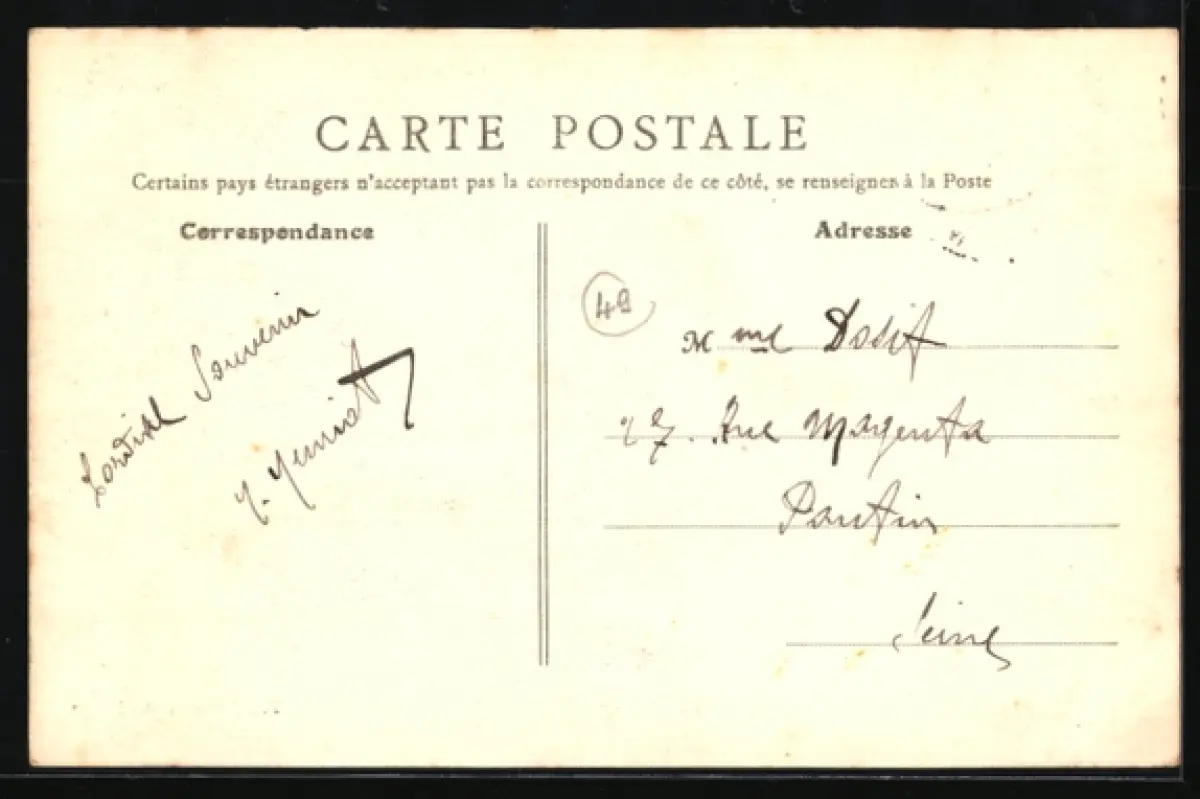 CARTE POSTALE
Certains pays étrangers n'acceptant pas la correspondance de ce côté, se renseigner à la Poste
Correspondance
Adresse
Cordial Souvenir
49
Mme Dodit
27. Rue Magenta
Pantin
Seine